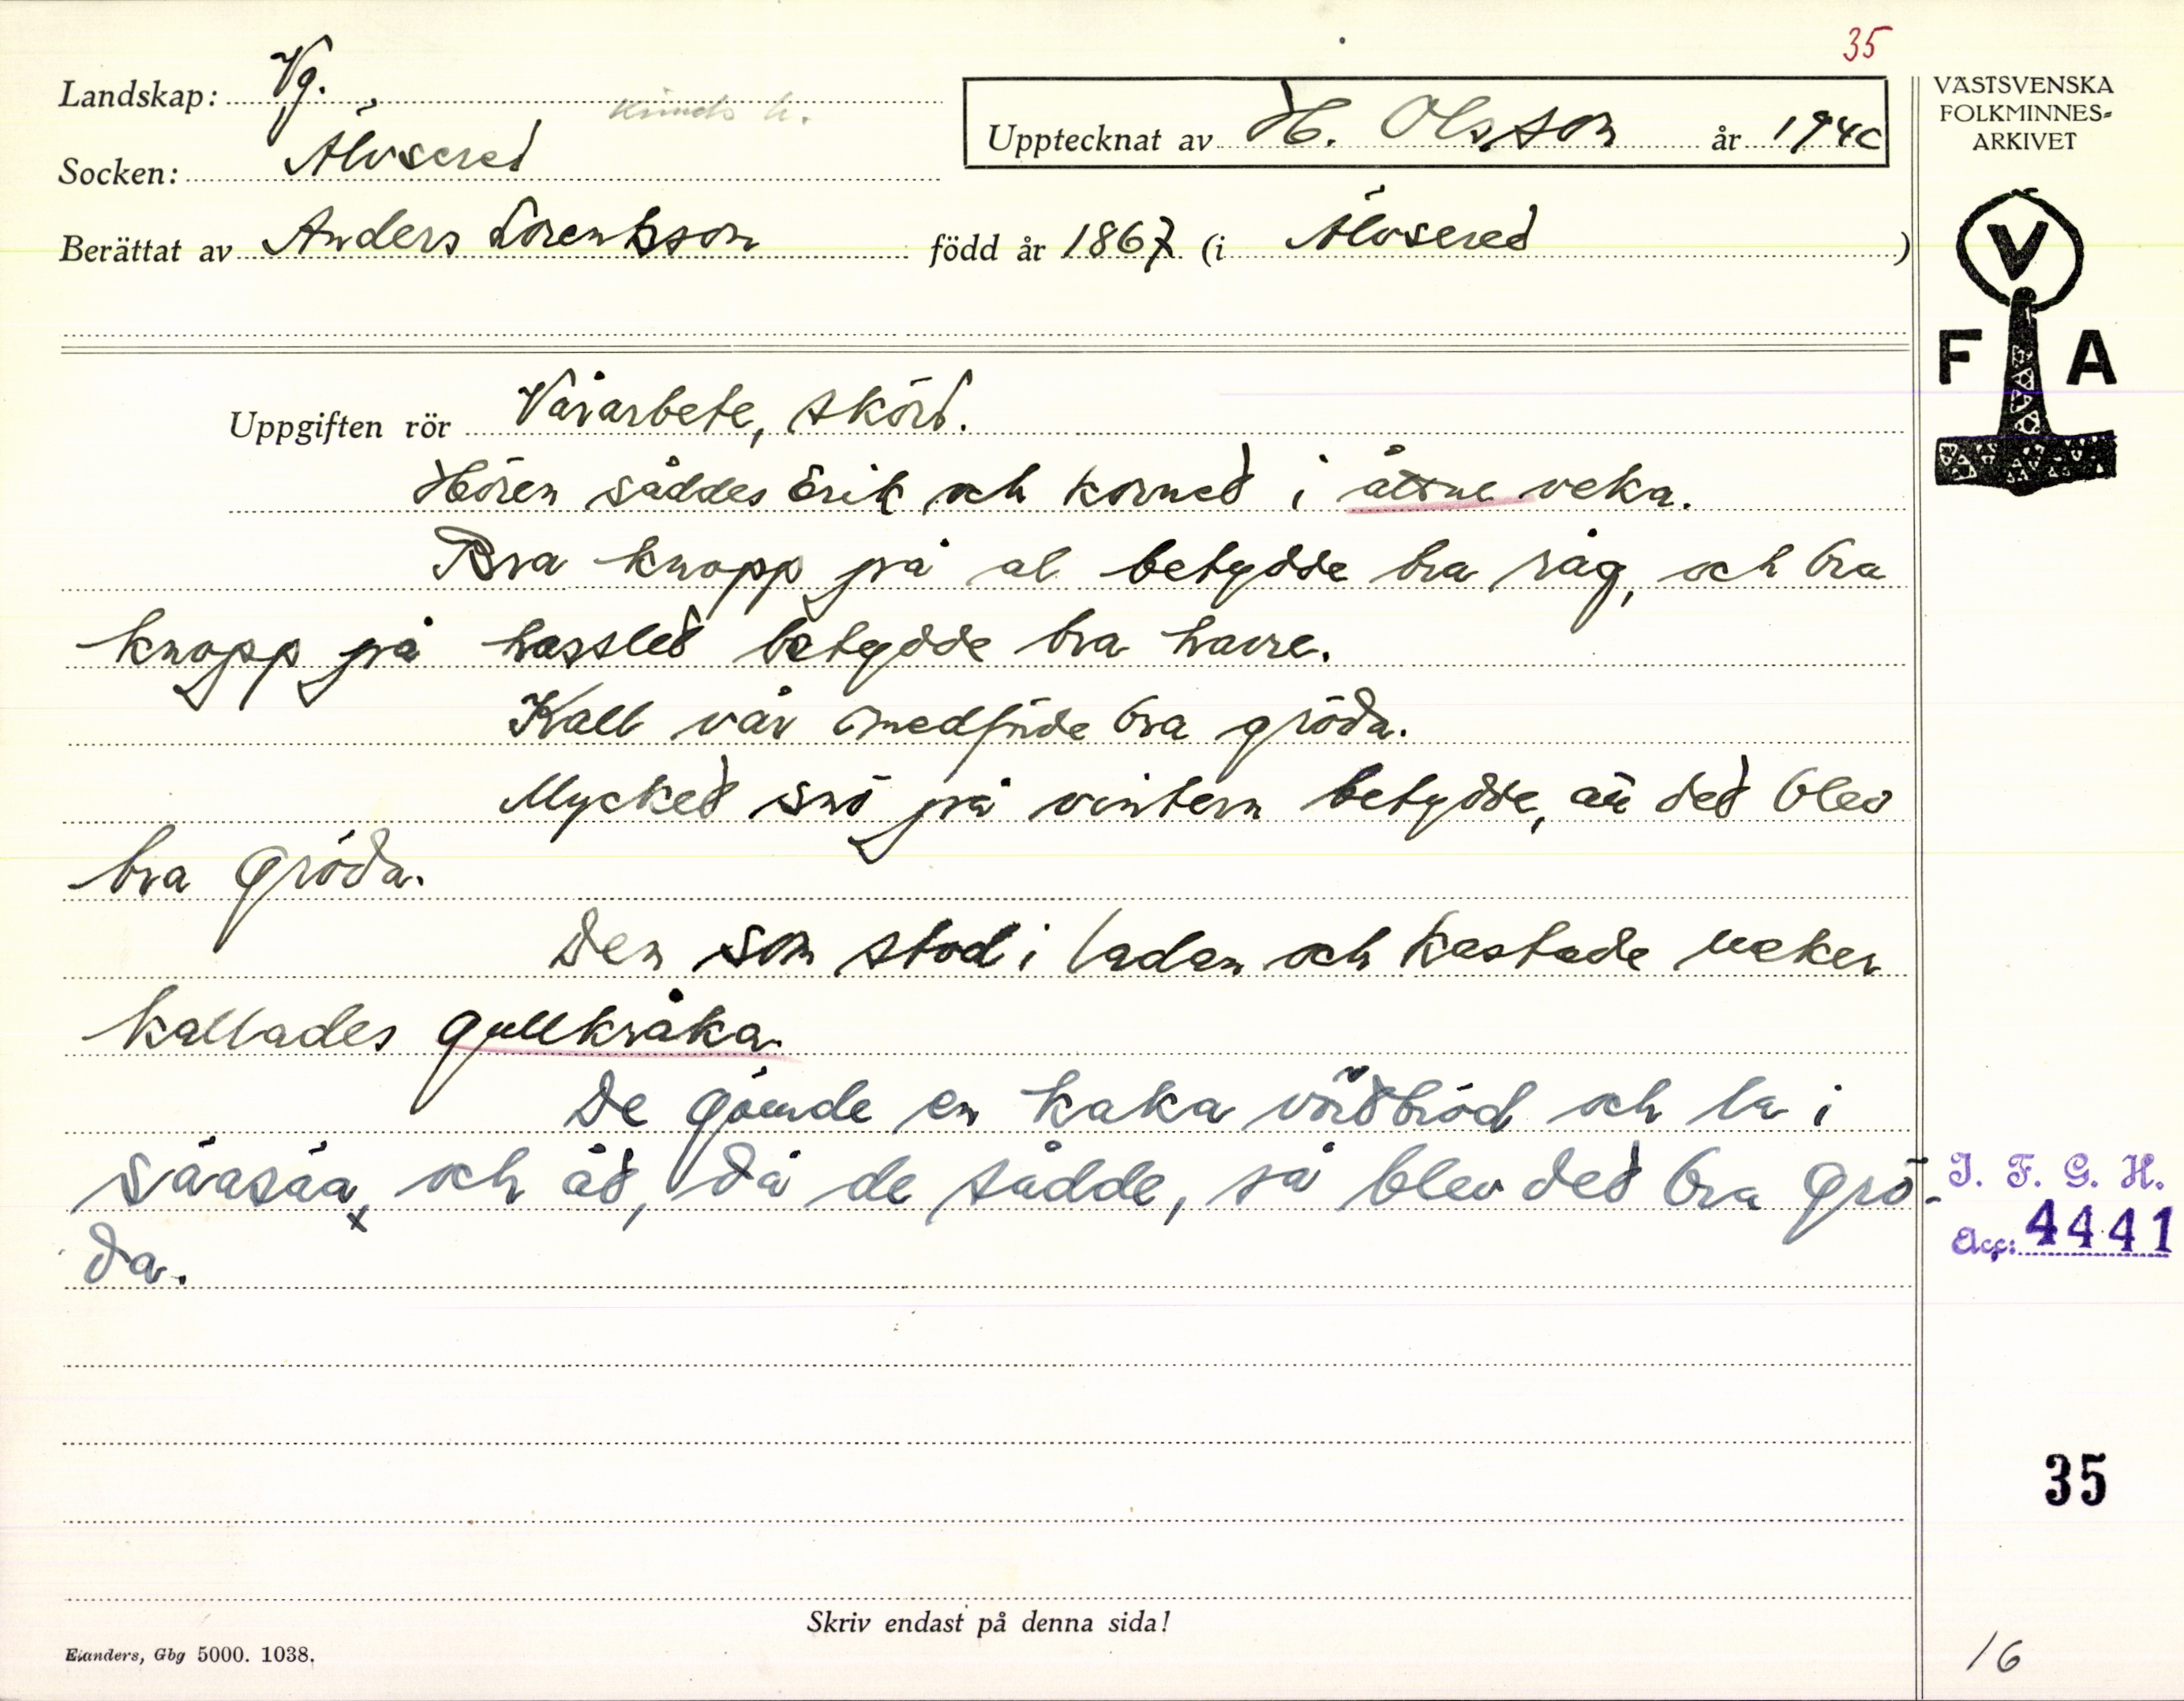 35
Landskap: Vg. Kinds h.
Socken: Älvsered
Upptecknat av H. Olsson år 1940
Berättat av Anders Lorentsson född år 1867 (i Älvsered)
VÄSTSVENSKA
FOLKMINNES-
ARKIVET
V
F A
Uppgiften rör Vårarbete, skörd.
Hören såddes Erik och korned i åtone veka.
Bra knopp på al betydde bra råg, och bra
knopp på hassled betydde bra havre.
Kall vår medförde bra gröda.
Mycked snö på vintern betydde, att ded blev
bra gröda.
Den som stod i ladan och kastade neker
kallades gullkråka.
De gömde en kaka vörtbröd och la i
såasåa, och åd, då de sådde, så blev ded bra grö-
x
da.
I. F. G. H.
Acc: 4441
35
Skriv endast på denna sida!
Elanders, Gbg 5000. 1038.
16